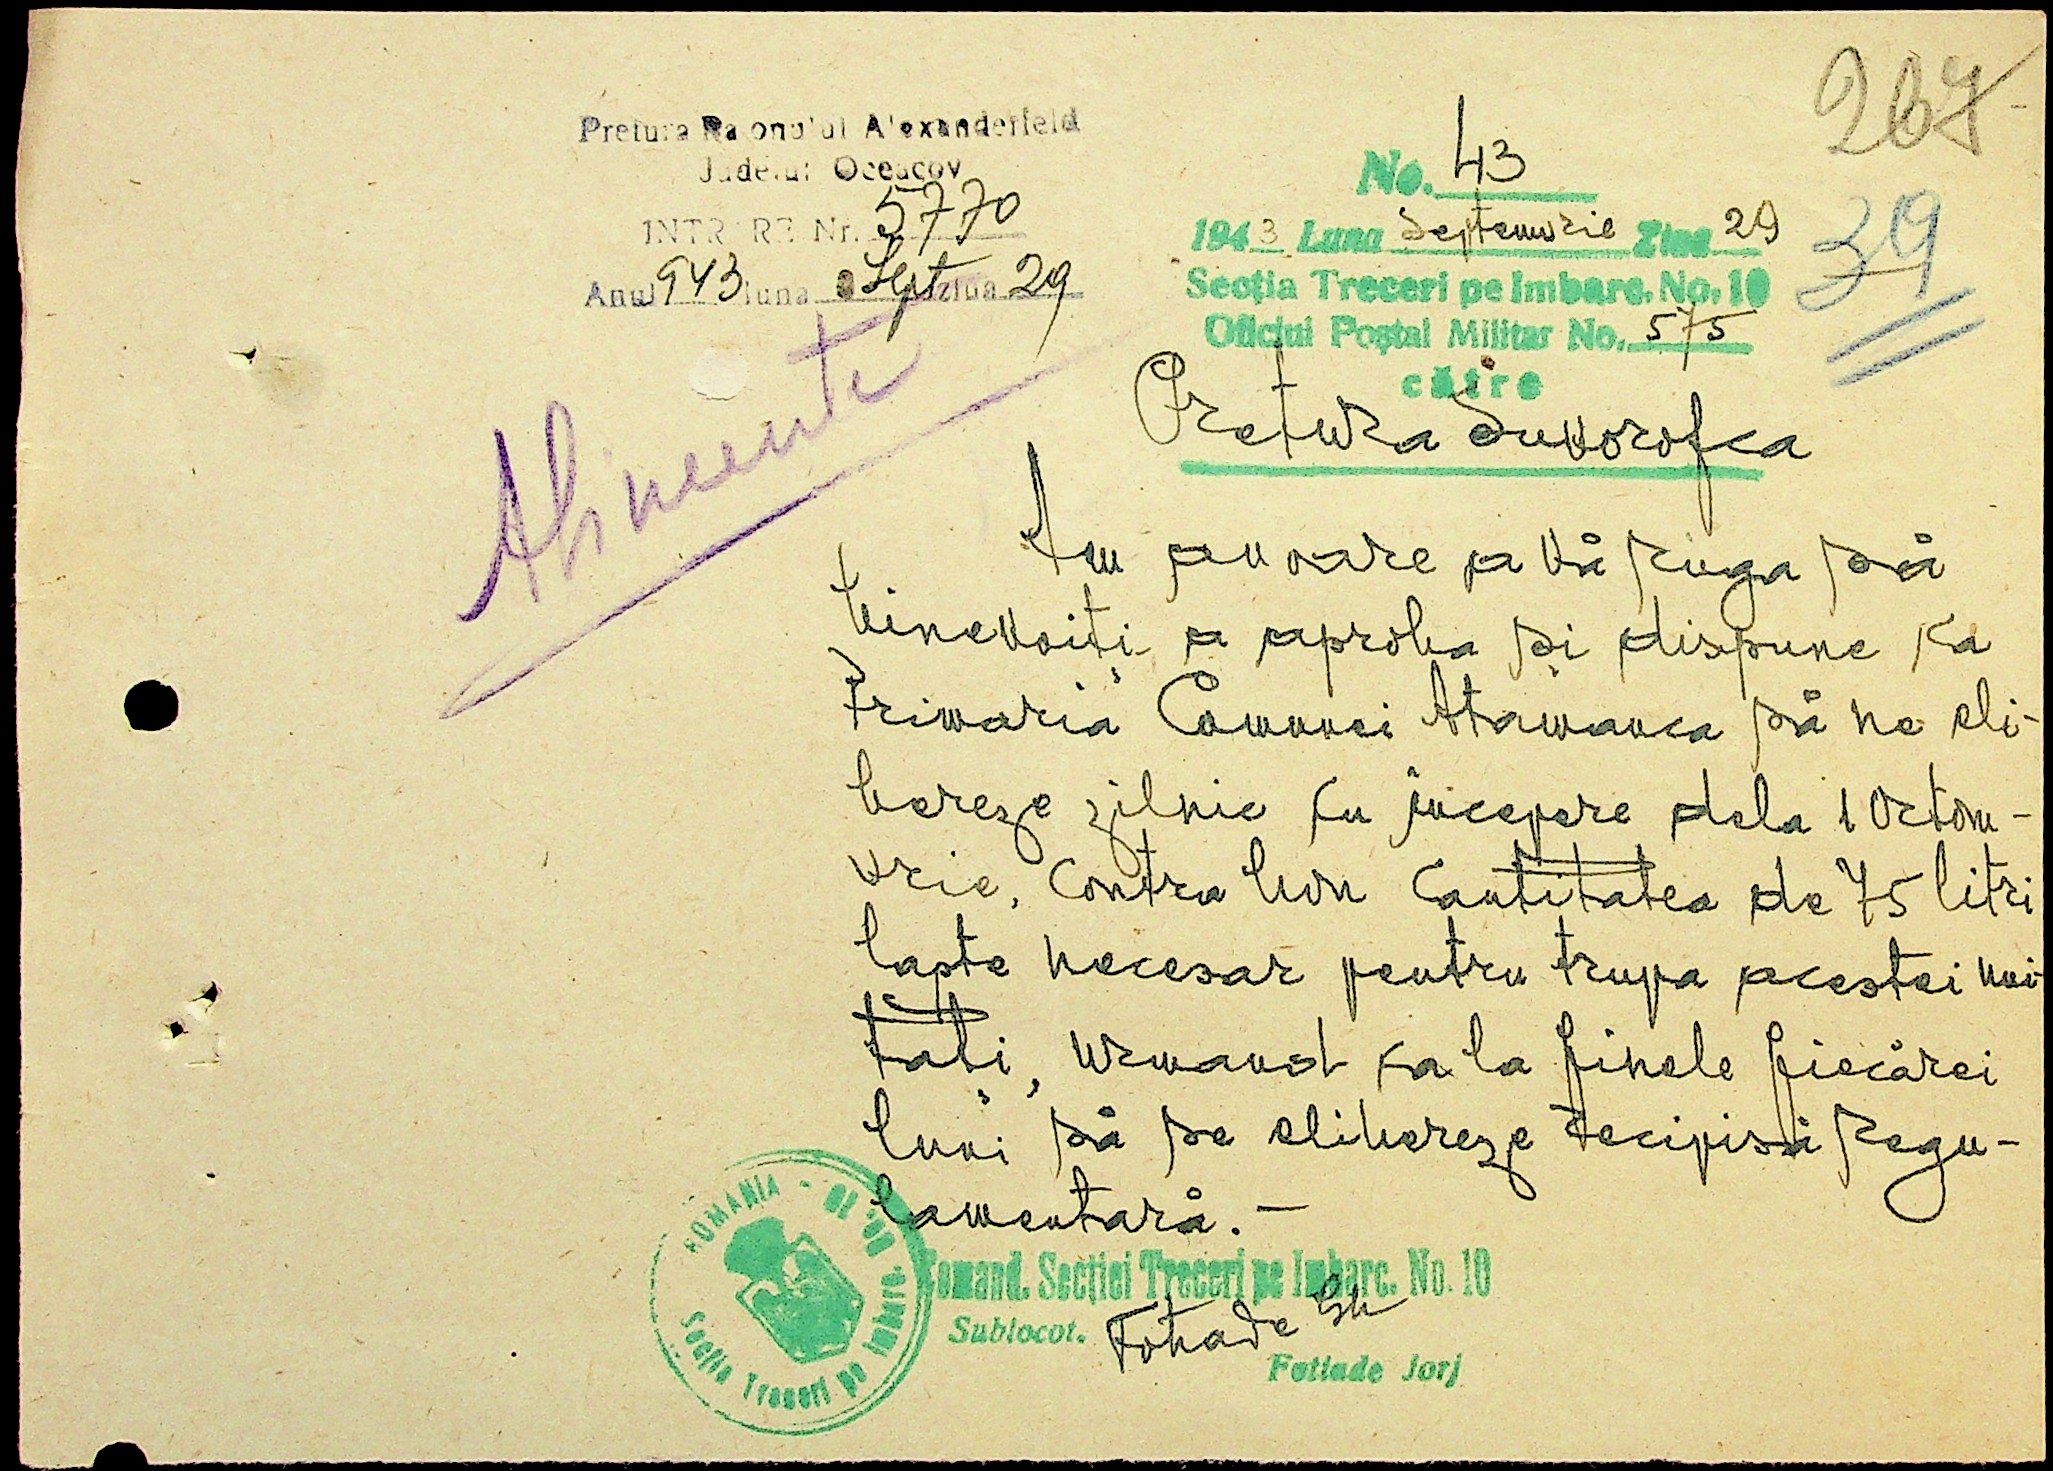 267
39
Pretura Raionului Alexanderfeld
Judetul Oceacov
INTRARE Nr. 5770
Anul 943 luna Sept ziua 29
No. 43
1943 Luna Septemvrie Ziua 29
Secția Treceri pe Imbarc. No. 10
Oficiul Poștal Militar No. 575
către
Pretura Suvorofca
Alimente
Am onoare a vă ruga să
binevoiți a aproba și dispune ca
Primaria Comunei Atamanca să ne eli-
bereze zilnic cu începere dela 1 Octom-
vrie, contra bon cantitatea de 75 litri
lapte necesar pentru trupa acestei uni-
tăți, urmand ca la finele fiecărei
luni să se elibereze recipisă regu-
lamentară.-
ROMANIA
Secția Treceri pe
Comand. Secției Treceri pe Imbarc. No. 10
Sublocot.
Fotiade Jorj